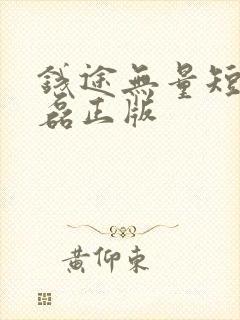 錢途無量短
磊正版
黃仰東